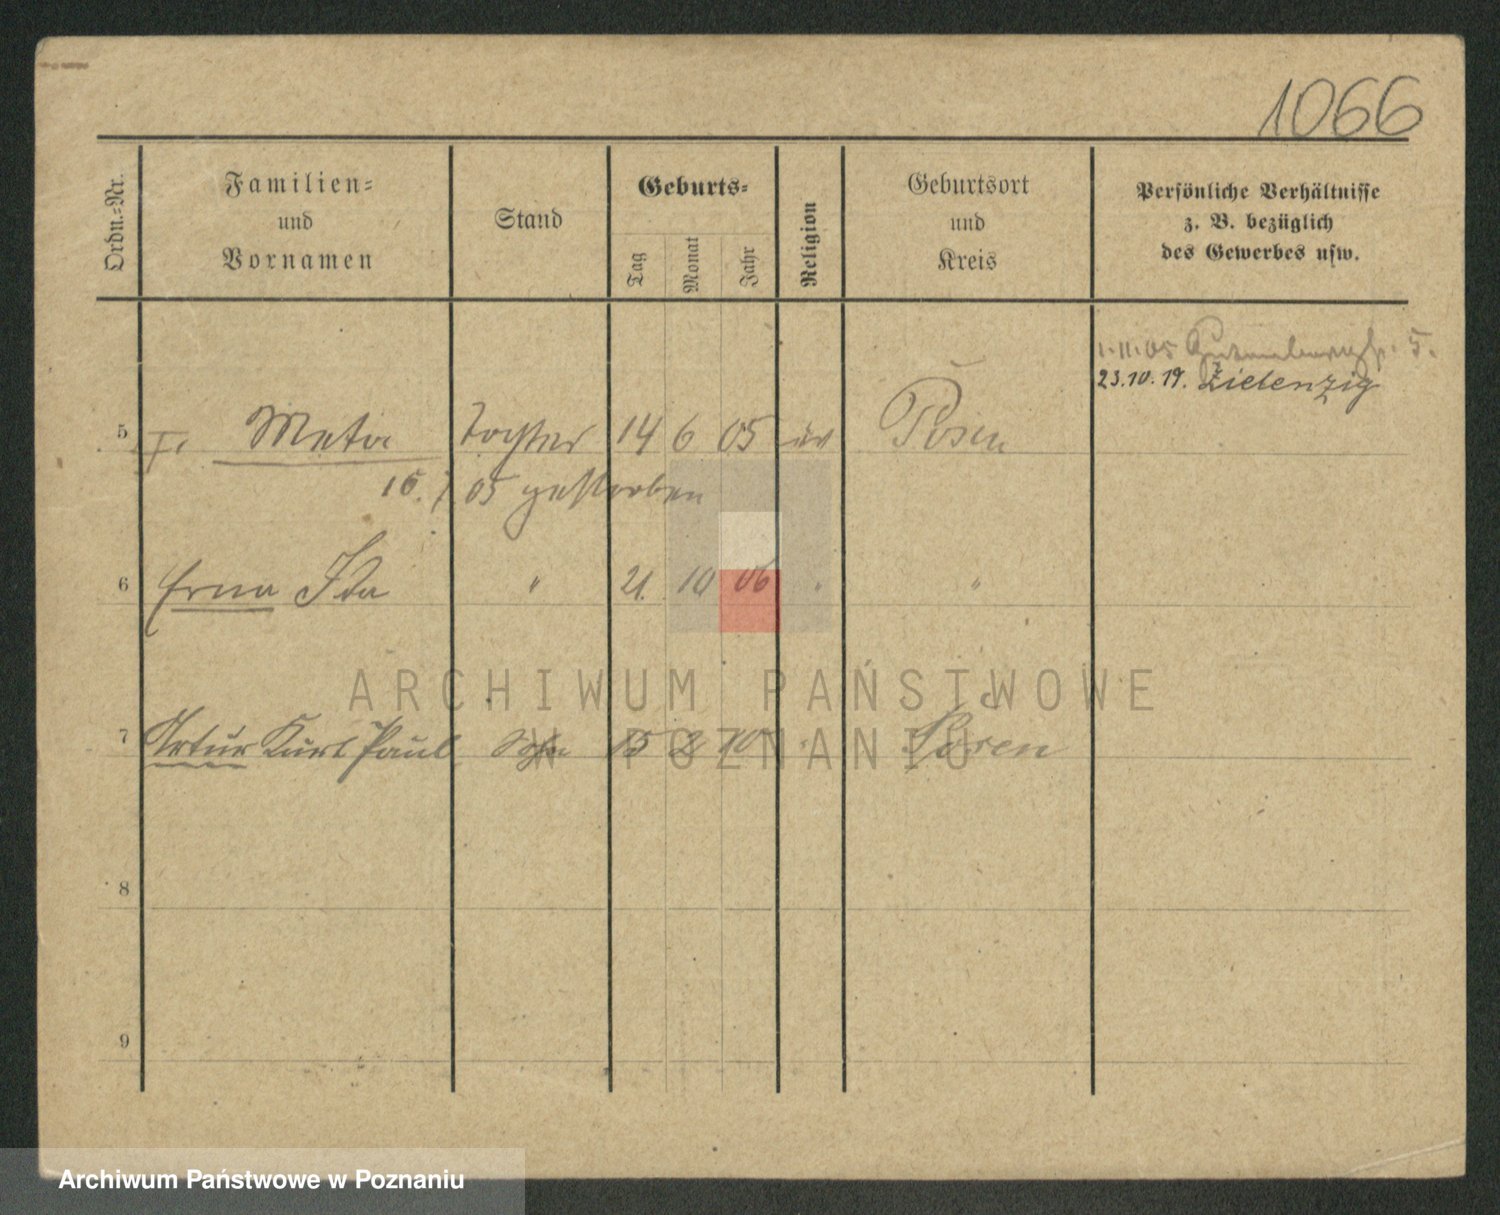 1066
Ordn.=Nr.
Familien=
und
Vornamen
Stand
Geburts=
Tag
Monat
Jahr
Religion
Geburtsort
und
Kreis
Persönliche Verhältnisse
z. B. bezüglich
des Gewerbes usw.
1.11.05 5.
23.10.19. Zielenzig
5 Meta Tochter 14 6 05 Posen
05 gestorben
6 Erna Ida " 21. 10 06 " "
7 Artur Kurt Paul Sohn 15 2 10 Posen
8
9
ARCHIWUM PAŃSTWOWE
W POZNANIU
Archiwum Państwowe w Poznaniu